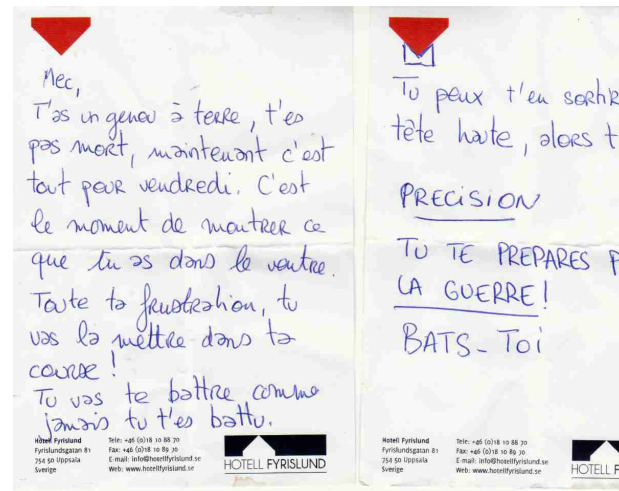 Mec,
T'as un genou à terre, t'es
pas mort, maintenant c'est
tout pour vendredi. C'est
le moment de montrer ce
que tu as dans le ventre.
Toute ta frustration, tu
vas la mettre dans ta
course !
Tu vas te battre comme
jamais tu t'es battu.
Hotell Fyrislund
Fyrislundsgatan 81
754 50 Uppsala
Sverige
Tele: +46 (0)18 10 88 70
Fax: +46 (0)18 10 89 70
E-mail: info@hotellfyrislund.se
Web: www.hotellfyrislund.se
HOTELL FYRISLUND
Tu peux t'en sortir
tête haute, alors t
PRECISION
TU TE PREPARES P
LA GUERRE!
BATS-TOI
Hotell Fyrislund
Fyrislundsgatan 81
754 50 Uppsala
Sverige
Tele: +46 (0)18 10 88 70
Fax: +46 (0)18 10 89 70
E-mail: info@hotellfyrislund.se
Web: www.hotellfyrislund.se
HOTELL F